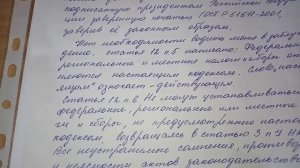 подписанную президентом Российской Федера
ции заверенную печатью ГОСТ Р 51511-2001,
заверив её законным образом.
Нет необходимости водить меня в заблуж
дение, статья 12 п. 5 написано: Федеральные
региональные и местные налоги и сборы от
меняются настоящим кодексом. Слово "нас
означает - действующим.
Статья 12 п. 6 Не могут устанавливаться
федеральные, региональные или местные
и сборы, не предусмотренные настоя
кодексом возвращаясь в статью 3 п. 7 НК
Все неустранимые сомнения, противо
и неясности актов законодательст